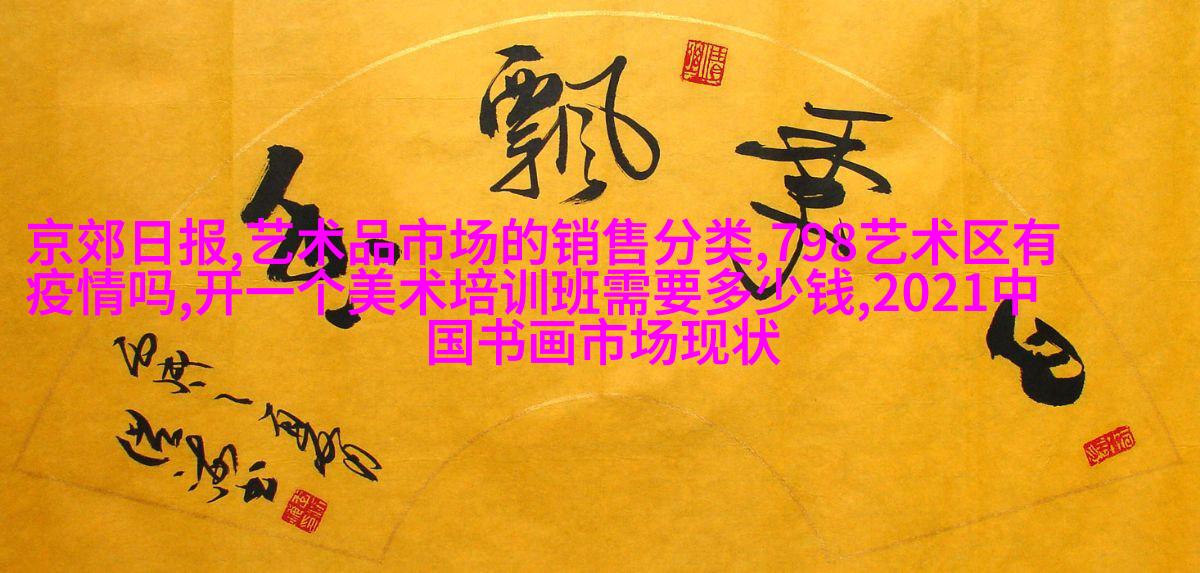 京郊日报,艺术品市场的销售分类,798艺术区有
疫情吗,开一个美术培训班需要多少钱,2021中
国书画市场现状
四季飘香